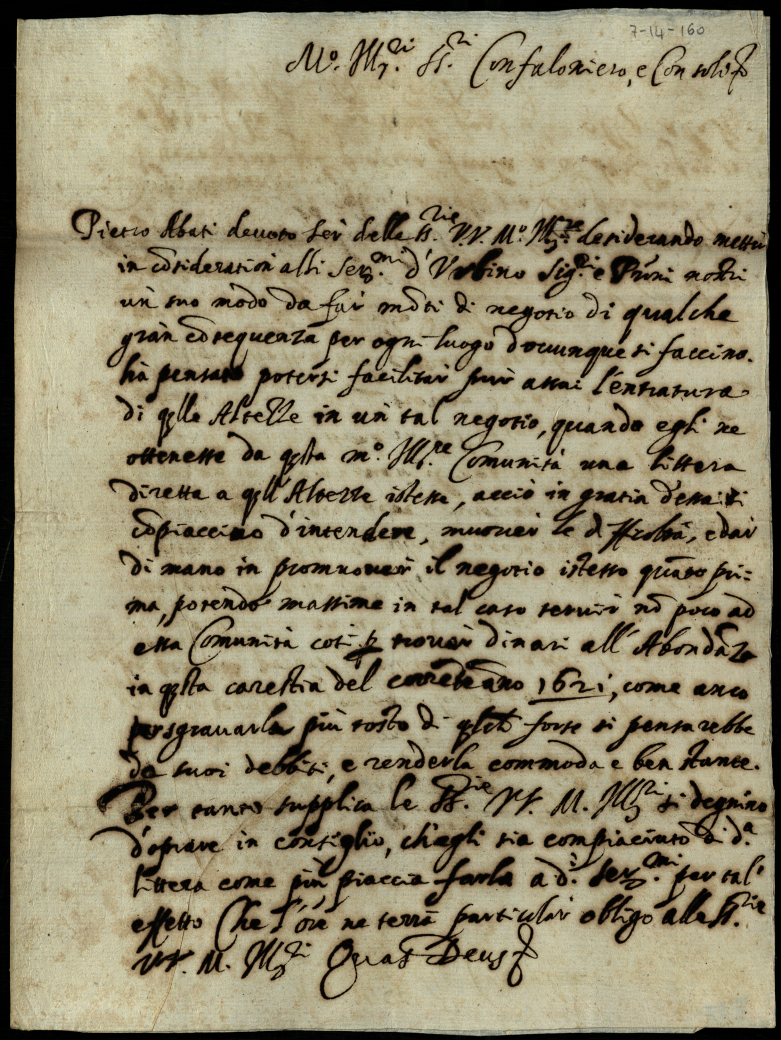 7-14-160
M.º Ill.ri SS.ri Confaloniero, e Consoli
Pietro Abati deuoto ser delle SS.rie VV. M.º Ill.re desiderando metter
in cõsideration alli Ser.mi d'Vrbino Sig.ri e Prõni nostri
un suo modo da far mõti di negotio di qualche
gran cõsequenza per ogni luogo douunque si faccino.
hà pensato potersi facilitar pur assai l'entratura
di qlle Altezze in un tal negotio, quando egli ne
ottenesse da qsta m.º Ill.re Comunità una littera
diretta a qll'Altezze istesse, acciò in gratia d'essa si
cõpiaccino d'intendere, muouer le difficoltà, e dar
di mano in promuouer il negotio istesso quãto pri=
ma, potendo massime in tal caso seruir nõ poco ad
essa Comunità così p trouar dinari all'Abondãza
in qsta carestia del corrẽte anno 1621, come anco
per sgrauarla più tosto di qllo forse si pensarebbe
da suoi debbiti, e renderla commoda e ben stante.
Per tanto supplica le SS.rie VV. M. Ill.ri si degnino
d'oprare in consiglio, ch'egli sia compiaciuto di d.a
littera come più piaccia farla a d.i Ser.mi per tal'
effetto Che l'ore ne terrà particular obligo alle SS.rie
VV. M. Ill.ri Quas Deus